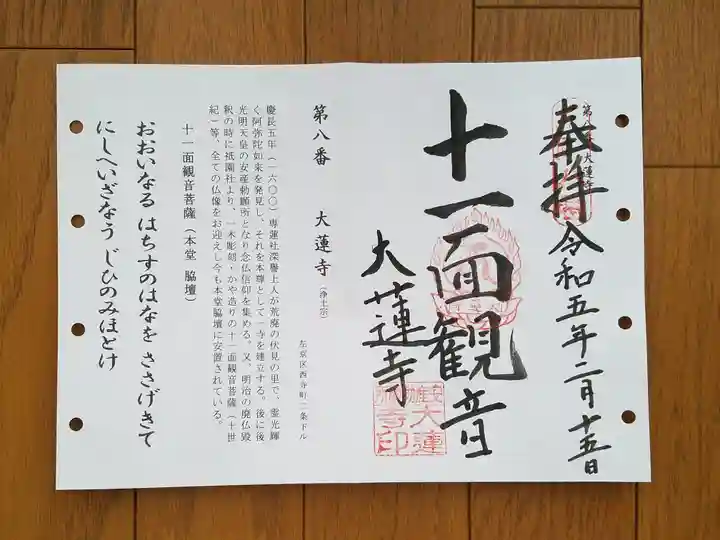 奉拝
令和五年二月十五日
十一面観音
大蓮寺
大蓮
寺印
第八番　大蓮寺（浄土宗）
左京区西寺町二条下ル
慶長五年（一六〇〇）専蓮社深誉上人が荒廃の伏見の里で、霊光輝
く阿弥陀如来を発見し、それを本尊として一寺を建立する。後に後
光明天皇の安産勅願所となり念仏信仰を集める。又、明治の廃仏毀
釈の時に祇園社より、一木彫刻・かや造りの十一面観音菩薩（十世
紀）等、全ての仏像をお迎えし今も本堂脇壇に安置されている。
十一面観音菩薩（本堂 脇壇）
おおいなる はちすのはなを ささげきて
にしへいざなう じひのみほとけ